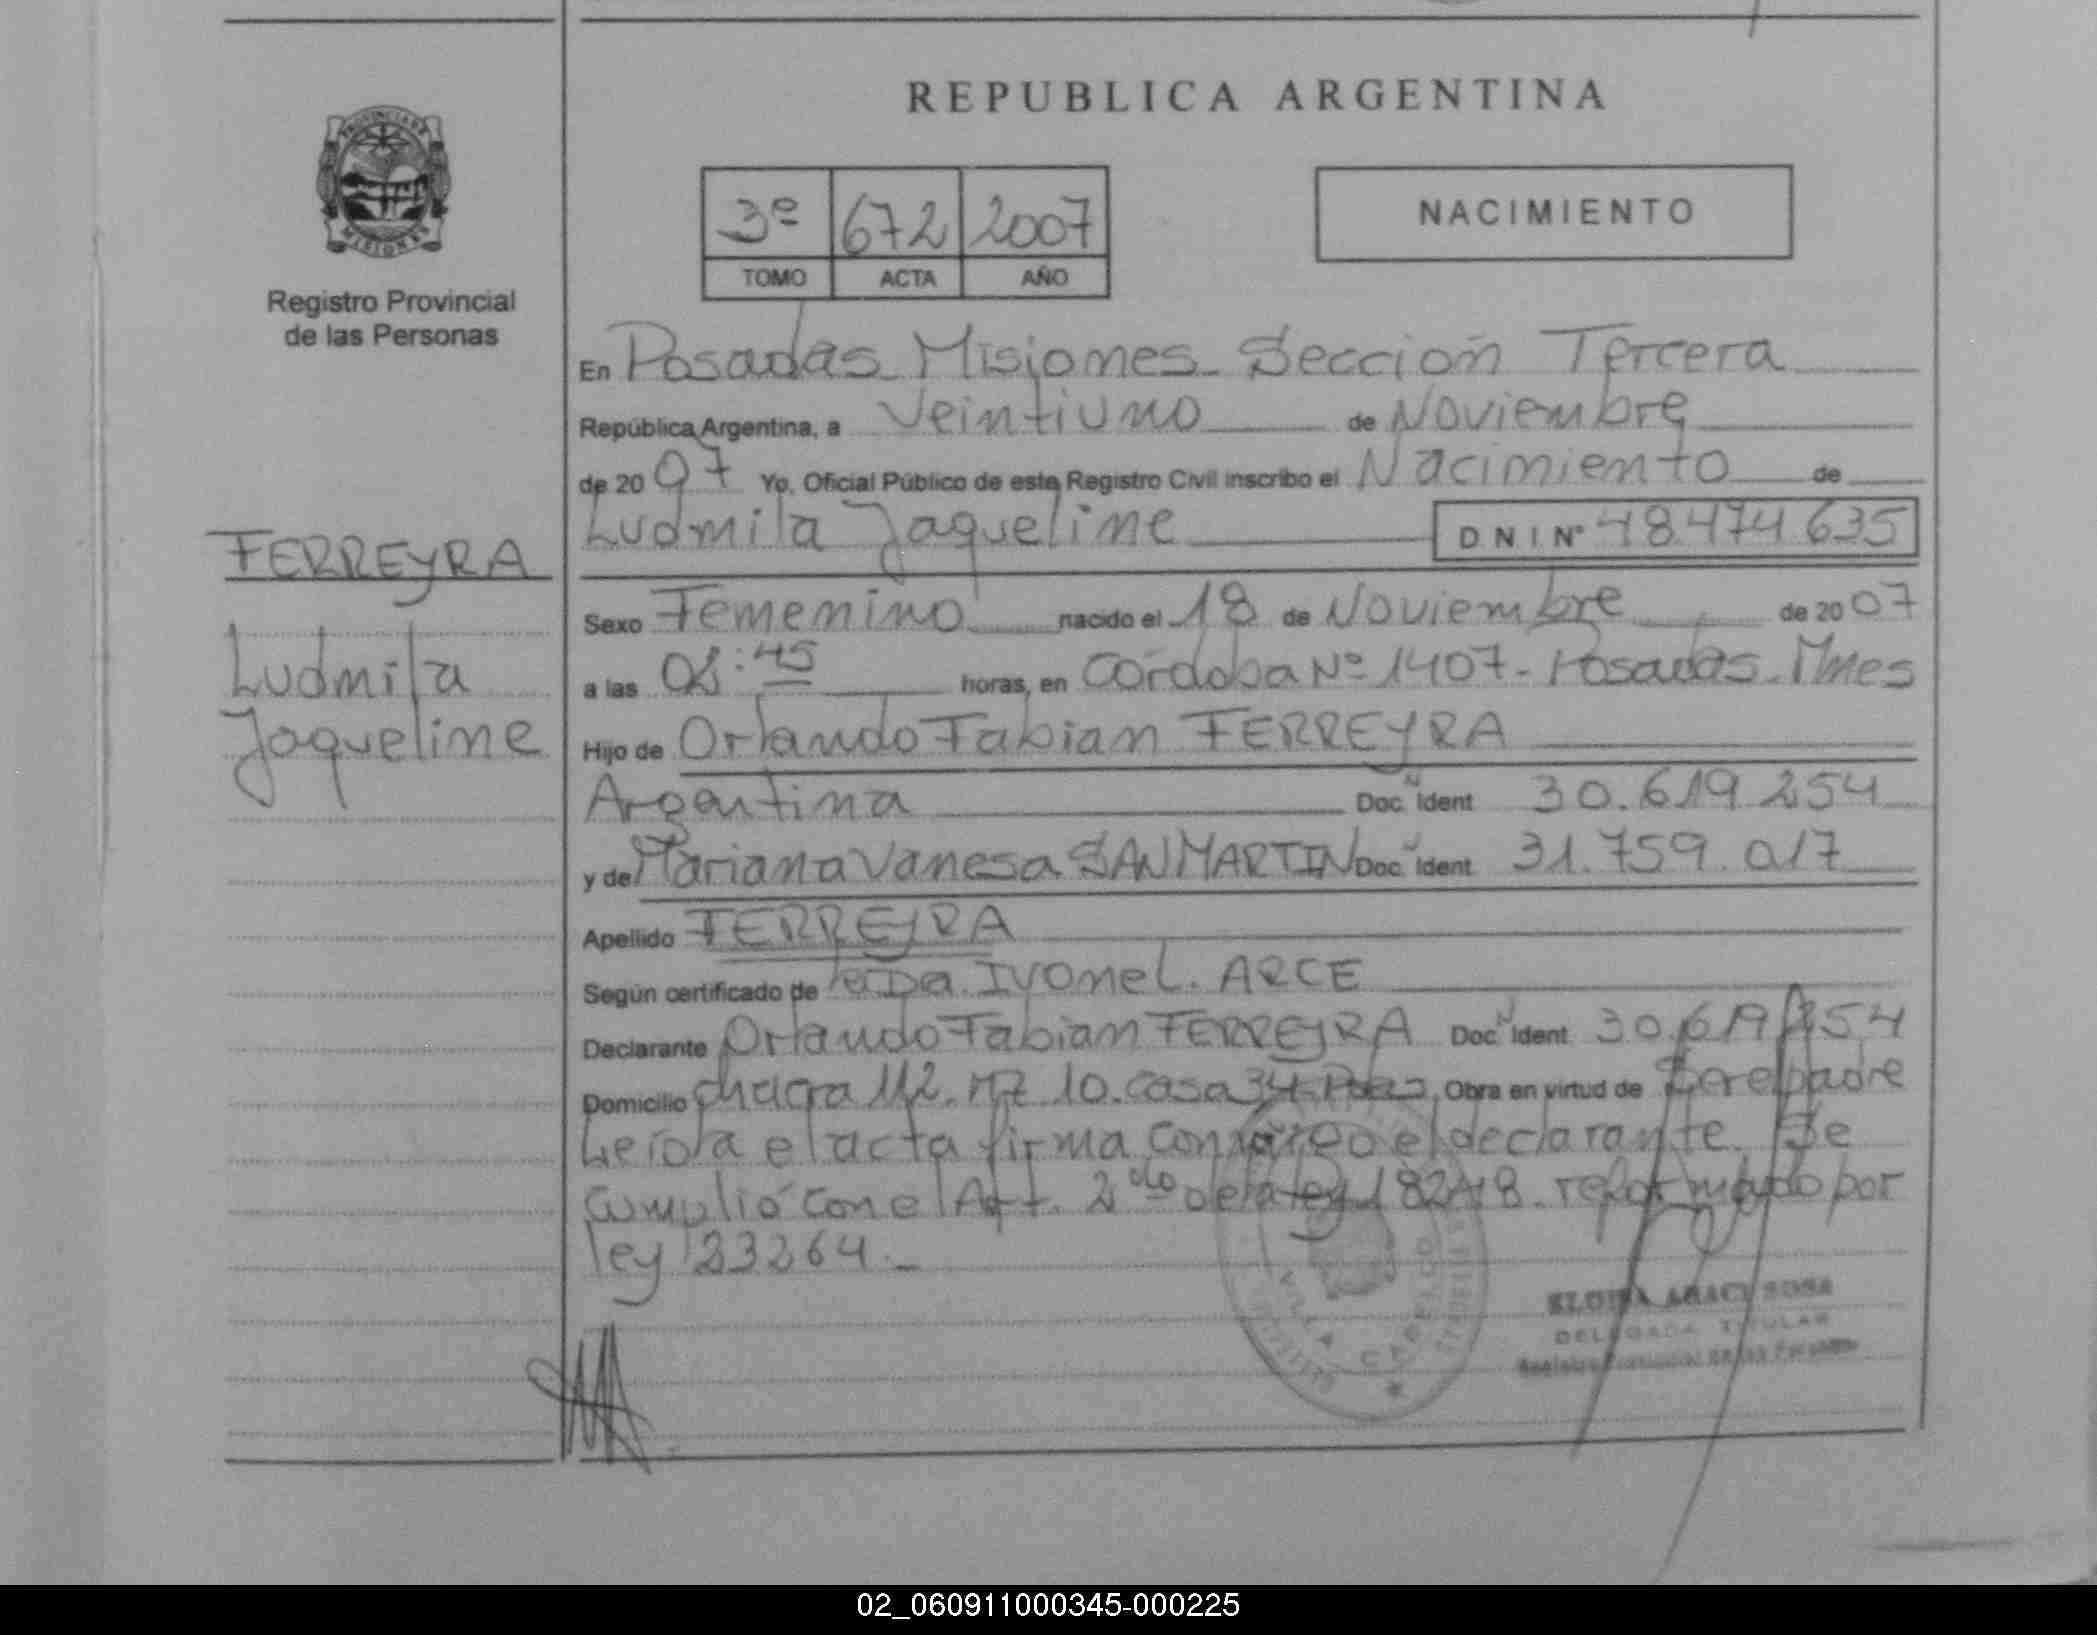 REPUBLICA ARGENTINA
PROVINCIA DE
MISIONES
Registro Provincial
de las Personas
3º 672 2007
TOMO ACTA AÑO
NACIMIENTO
En Posadas Misiones Sección Tercera
República Argentina, a Veintiuno de Noviembre
de 2007 Yo, Oficial Público de este Registro Civil inscribo el Nacimiento de
Ludmila Jaqueline D N I Nº 48.474.635
FERREYRA
Ludmila
Jaqueline
Sexo Femenino nacido el 18 de Noviembre de 2007
a las :45 horas, en Córdoba Nº 1407 - Posadas Mnes
Hijo de Orlando Fabian FERREYRA
Argentina Doc. N Ident 30.619.254
y de Mariana Vanesa SAN MARTIN Doc. N Ident 31.759.017
Apellido FERREYRA
Según certificado de Ivone L. ARCE
Declarante Orlando Fabian FERREYRA Doc. N Ident 30.619.254
Domicilio chacra 112. MZ 10. Casa 34 Pdas Obra en virtud de Ser el padre
Leída el acta firma conmigo el declarante. Se
cumplió con el Art. 2do de la ley 18248 reformado por
ley 23264.-
VILLA CABELLO
ARACI SOSA
DELEGADA TITULAR
Registro Provincial de las Personas
02_060911000345-000225